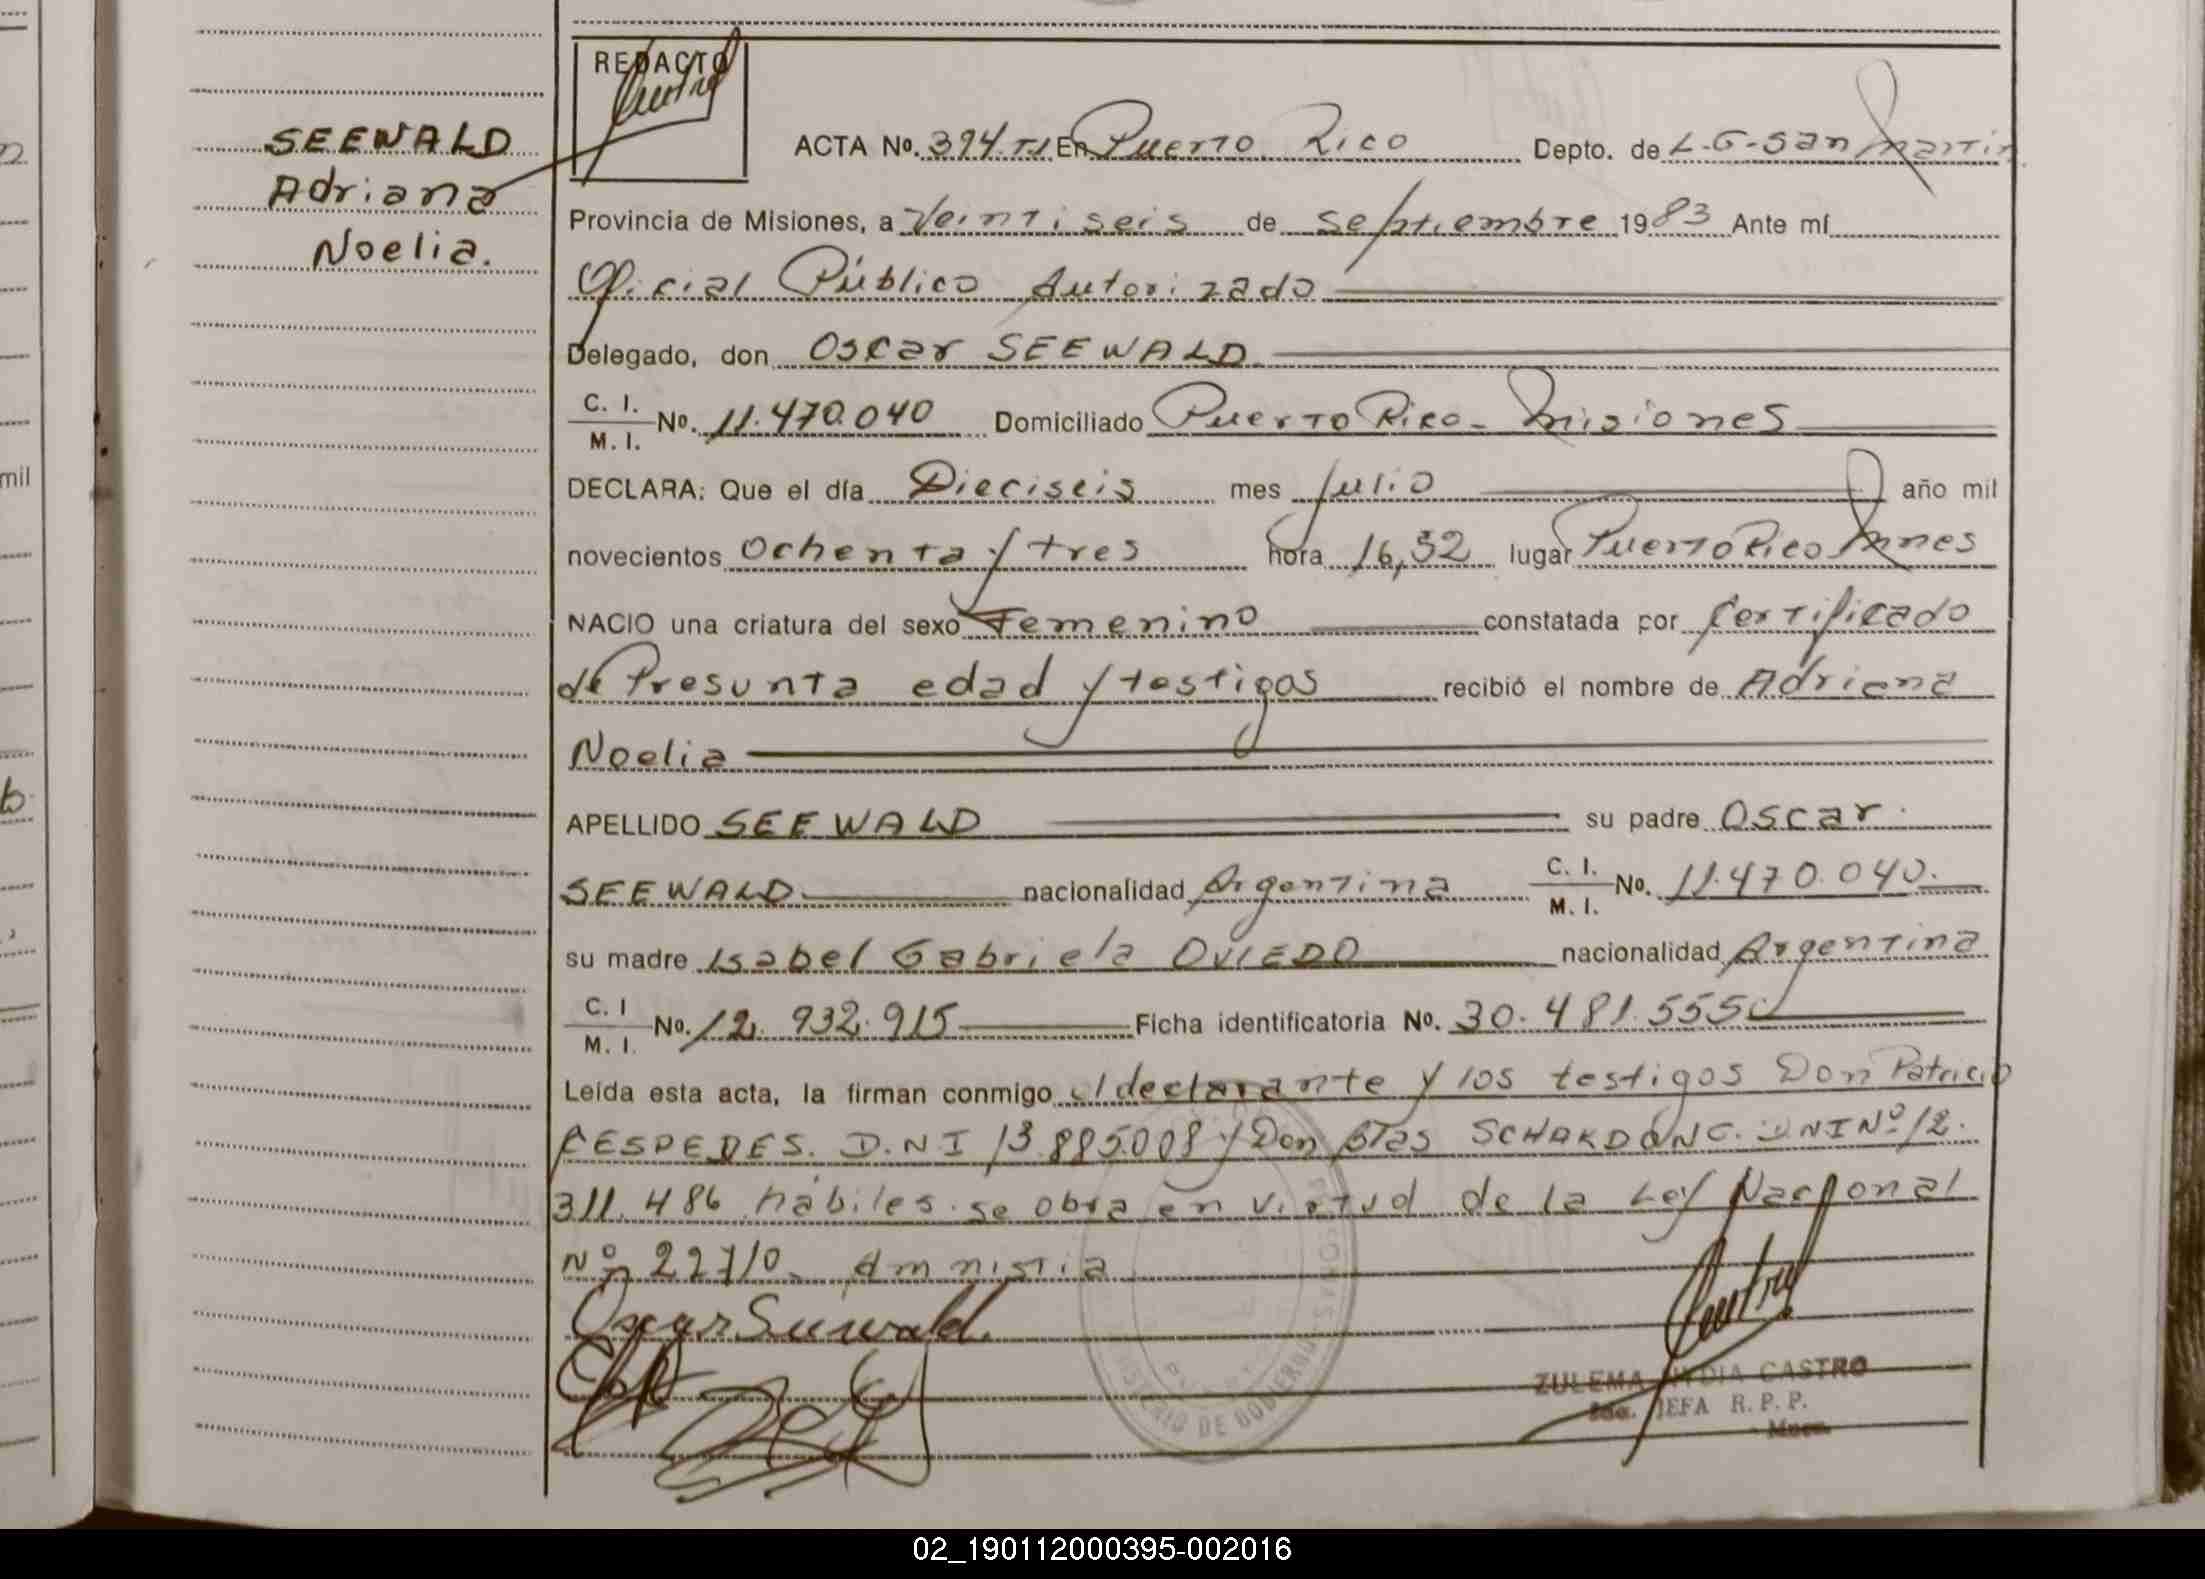 REDACTO
SEEWALD
Adriana
Noelia.
ACTA No. 394.TI En Puerto Rico Depto. de L.G. San Martin
Provincia de Misiones, a Veintiseis de septiembre 1983 Ante mí
Oficial Público Autorizado
Delegado, don Oscar SEEWALD
C. I.
M. I. No. 11.470.040 Domiciliado Puerto Rico - Misiones
DECLARA: Que el día Dieciseis mes Julio año mil
novecientos Ochenta y tres hora 16,32 lugar Puerto Rico Mnes
NACIO una criatura del sexo Femenino constatada por Certificado
de Presunta edad y testigos recibió el nombre de Adriana
Noelia
APELLIDO SEEWALD su padre Oscar
SEEWALD nacionalidad Argentina C. I. M. I. No. 11.470.040.
su madre Isabel Gabriela OVIEDO nacionalidad Argentina
C. I
M. I. No. 12.932.915 Ficha identificatoria No. 30.481.555
Leída esta acta, la firman conmigo el declarante y los testigos Don Patricio
CESPEDES. D.N I 13.885.008 y Don Blas DNI Nº 12.
311.486 hábiles. se obra en virtud de la Ley Nacional
Nº 22710- Amnistia
Oscar Seewald
ZULEMA CASTRO
JEFA R. P. P.
Mnes.
MINISTERIO DE GOBIERNO
mil
02_190112000395-002016